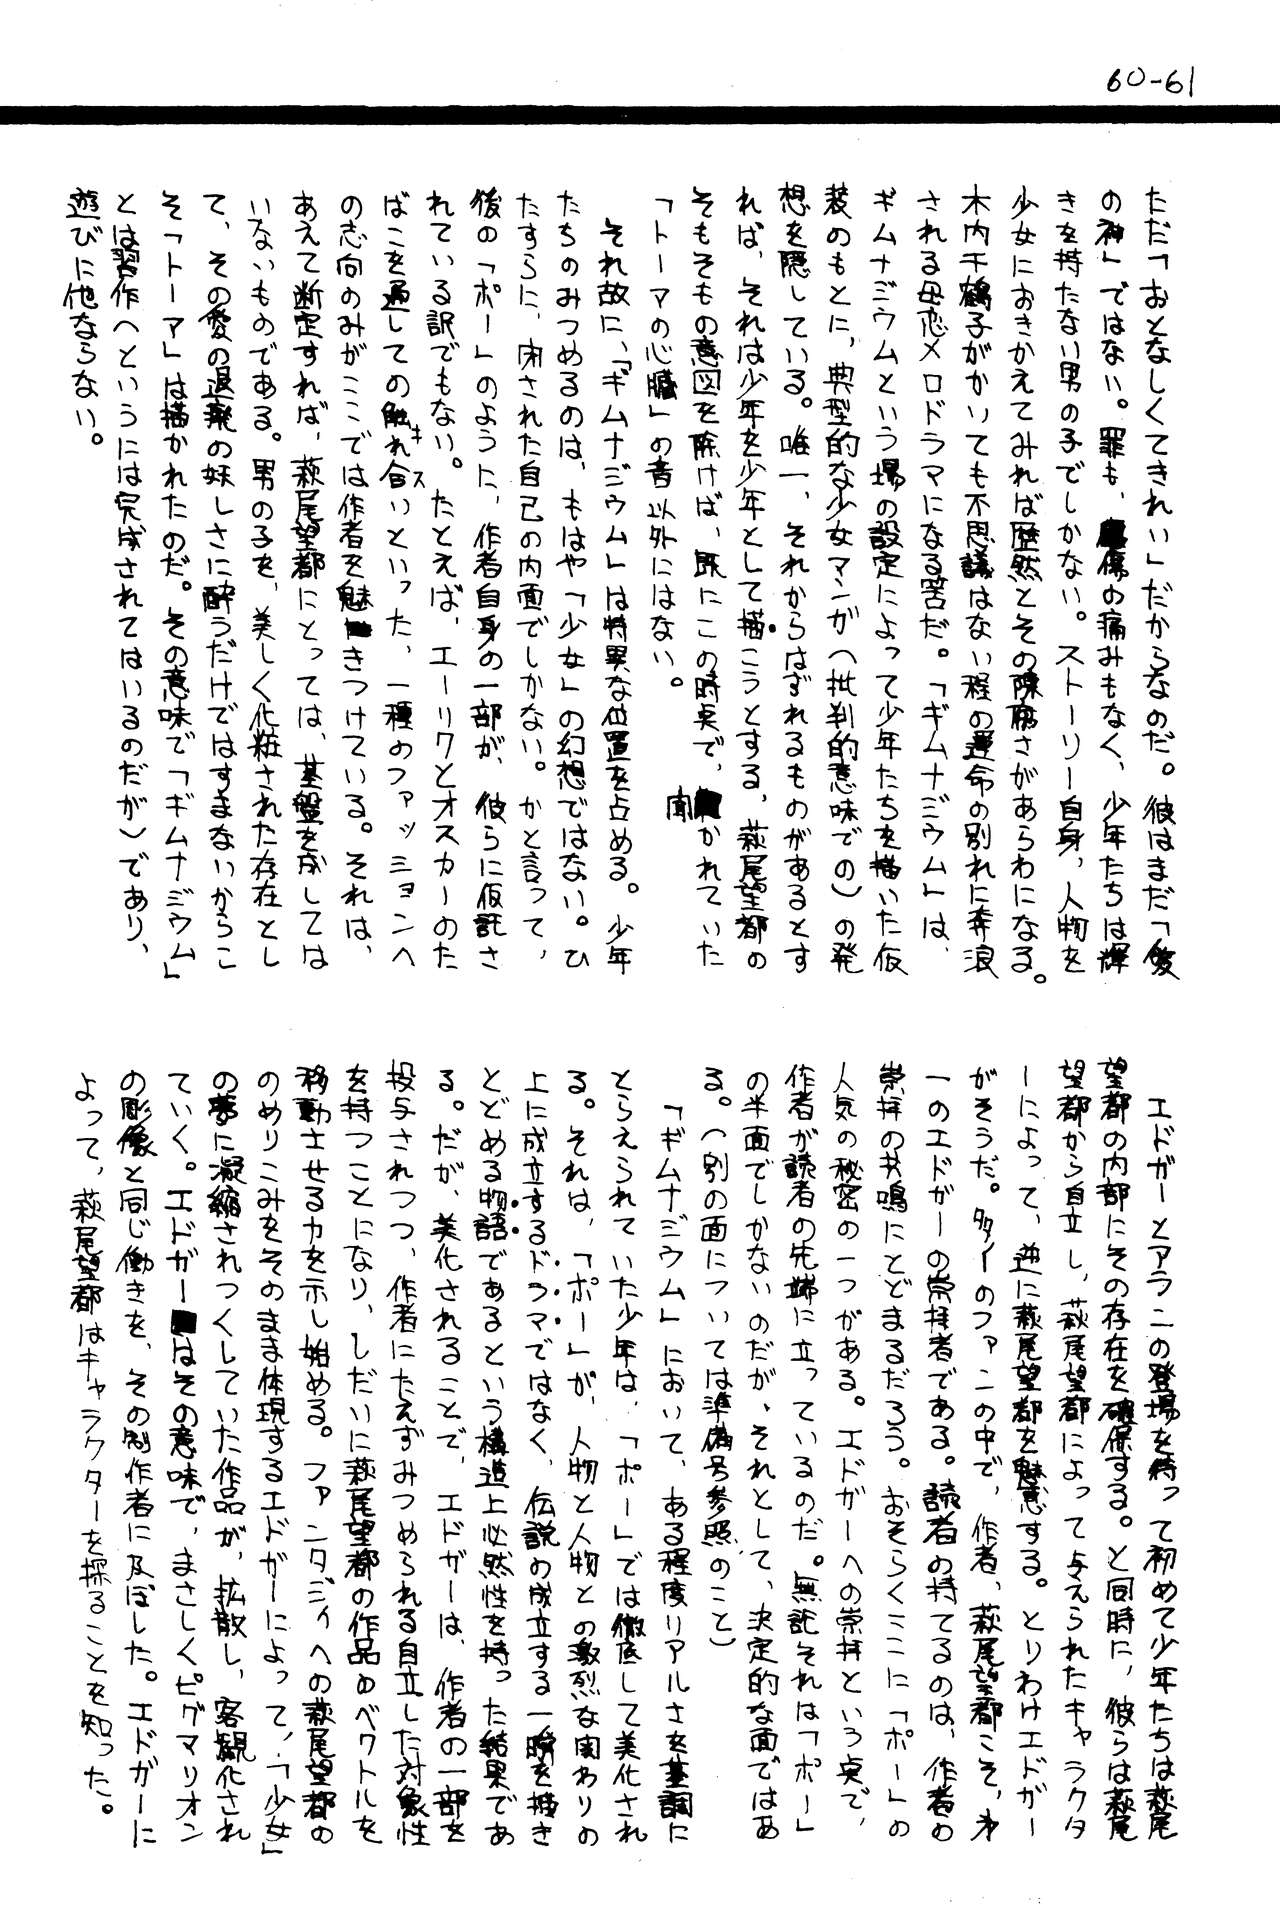 60-61
ただ「おとなしくてきれい」だからなのだ。彼はまだ「愛
の神」ではない。罪も、傷の痛みもなく、少年たちは輝
きを持たない男の子でしかない。ストーリー自身、人物を
少女におきかえてみれば歴然とその陳腐さがあらわになる。
木内千鶴子がかいても不思議はない程の運命の別れに奔浪
される母恋メロドラマになる筈だ。「ギムナジウム」は、
ギムナジウムという場の設定によって少年たちを描いた仮
装のもとに、典型的な少女マンガ(批判的意味での)の発
想を隠している。唯一、それからはずれるものがあるとす
れば、それは少年を少年として描こうとする、萩尾望都の
そもそもの意図を除けば、既にこの時点で、聞かれていた
「トーマの心臓」の音以外にはない。
それ故に、「ギムナジウム」は特異な位置を占める。少年
たちのみつめるのは、もはや「少女」の幻想ではない。ひ
たすらに、閉された自己の内面でしかない。かと言って、
後の「ポー」のように、作者自身の一部が、彼らに仮託さ
れている訳でもない。たとえば、エーリクとオスカーのた
ばこを通しての触れ合い(キス)といった、一種のファッションへ
の志向のみがここでは作者を魅きつけている。それは、
あえて断定すれば、萩尾望都にとっては、基盤を成しては
いないものである。男の子を、美しく化粧された存在とし
て、その愛の退廃の妖しさに酔うだけではすまないからこ
そ「トーマ」は描かれたのだ。その意味で「ギムナジウム」
とは習作(というには完成されてはいるのだが)であり、
遊びに他ならない。
エドガーとアランの登場を待って初めて少年たちは萩尾
望都の内部にその存在を確保する。と同時に、彼らは萩尾
望都から自立し、萩尾望都によって与えられたキャラクタ
ーによって、逆に萩尾望都を魅惑する。とりわけエドガー
がそうだ。多くのファンの中で、作者、萩尾望都こそ、才
一のエドガーの崇拝者である。読者の持てるのは、作者の
崇拝の共鳴にとどまるだろう。おそらくここに「ポー」の
人気の秘密の一つがある。エドガーへの崇拝という点で、
作者が読者の先端に立っているのだ。無論それは「ポー」
の半面でしかないのだが、それとして、決定的な面ではあ
る。(別の面については準備号参照のこと)
「ギムナジウム」において、ある程度リアルさを基調に
とらえられていた少年は、「ポー」では徹底して美化され
る。それは、「ポー」が、人物と人物との激烈な関わりの
上に成立するドラマではなく、伝説の成立する一瞬を描き
とどめる物語であるという構造上必然性を持った結果であ
る。だが、美化されることで、エドガーは、作者の一部を
投与されつつ、作者にたえずみつめられる自立した対象性
を持つことになり、しだいに萩尾望都の作品のベクトルを
移動させる力を示し始める。ファンタジィへの萩尾望都の
のめりこみをそのまま体現するエドガーによって、「少女」
の夢に凝縮されつくしていた作品が、拡散し、客観化され
ていく。エドガーはその意味で、まさしくピグマリオン
の彫像と同じ働きを、その制作者に及ぼした。エドガーに
よって、萩尾望都はキャラクターを探ることを知った。